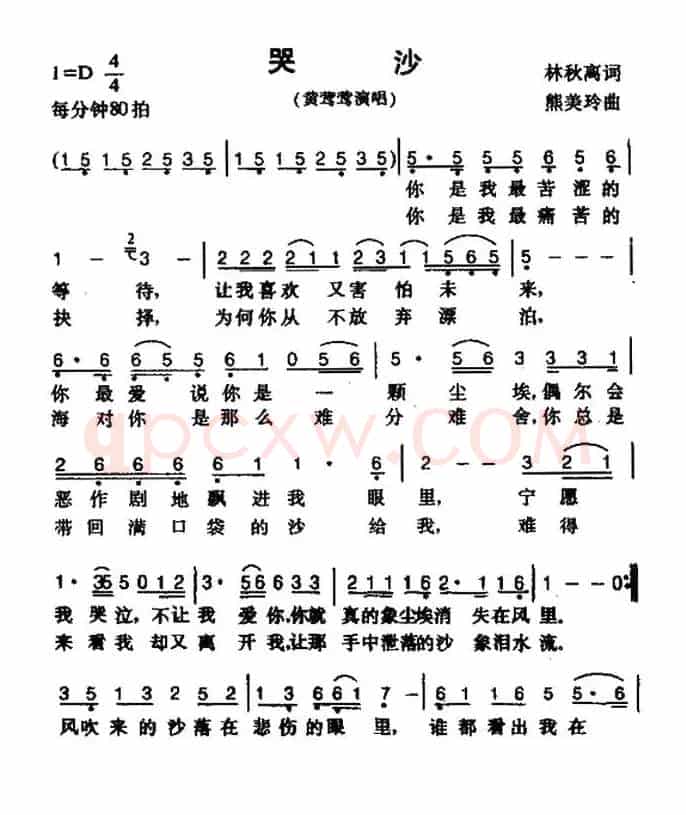 哭 沙
1=D 4/4
林秋离词
(黄莺莺演唱)
每分钟80拍
熊美玲曲
(1 5 1 5 2 5 3 5 | 1 5 1 5 2 5 3 5) | 5 · 5 5 5 5 5 6
你是我最苦涩的
你是我最痛苦的
1 - 2 3 - | 2 2 2 2 1 1 2 3 1 1 5 6 5 | 5 - - -
等 待, 让我喜欢 又害怕未 来,
抉 择, 为何你从 不放弃漂 泊.
6 · 6 6 5 5 6 1 0 5 6 | 5 · 5 6 3 3 3 1
你最爱说你是一 颗尘埃,偶尔会
海对你是那么难 分难舍,你总是
2 6 6 6 6 1 1 · 6 | 2 - - 3 2 1
恶作剧地飘进我 眼里, 宁愿
带回满口袋的沙 给我, 难得
1 · 3 5 5 0 1 2 | 3 · 5 6 6 3 3 | 2 1 1 1 6 5 · 1 1 6 | 1 - - 0
我哭泣,不让我 爱你,你就 真的象尘埃消 失在风里.
来看我却又离 开我,让那 手中泄落的沙 象泪水流.
3 5 1 3 2 5 2 | 1 3 6 6 1 7 - | 6 1 1 6 5 5 5 · 6
风吹来的沙落在 悲伤的眼 里, 谁都看出我在
qpcxw.com